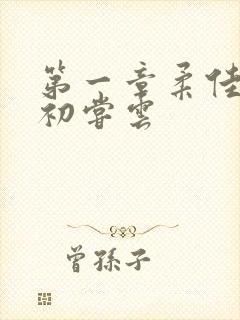 第一章柔佳
初尝云
曾孙子